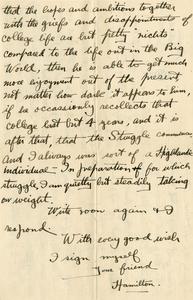 that the hopes and ambitions together
with the griefs and disappointments of
college life as but petty "nichts"
compared to the life out in the Big
World, then he is able to get much
more enjoyment out of the present
not matter how dark it appears to him,
if he occasionly recollects that
college last but 4 years, and it is
after that, that the Struggle commences
And I always was sort of a Highlandic
individual — In preparation for which
struggle, I am quietly but steadily taking
on weight.
Write soon again & I
respond
With every good wish
I sign myself
Your friend
Hamilton.